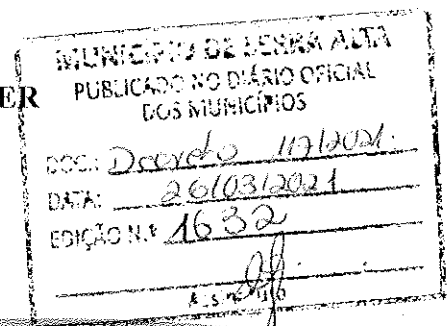 MUNICÍPIO DE SERRA ALTA
ER
PUBLICADO NO DIÁRIO OFICIAL
DOS MUNICÍPIOS
DOC.: Decreto 117/2021.
DATA: 26/03/2021
EDIÇÃO N.º 1632